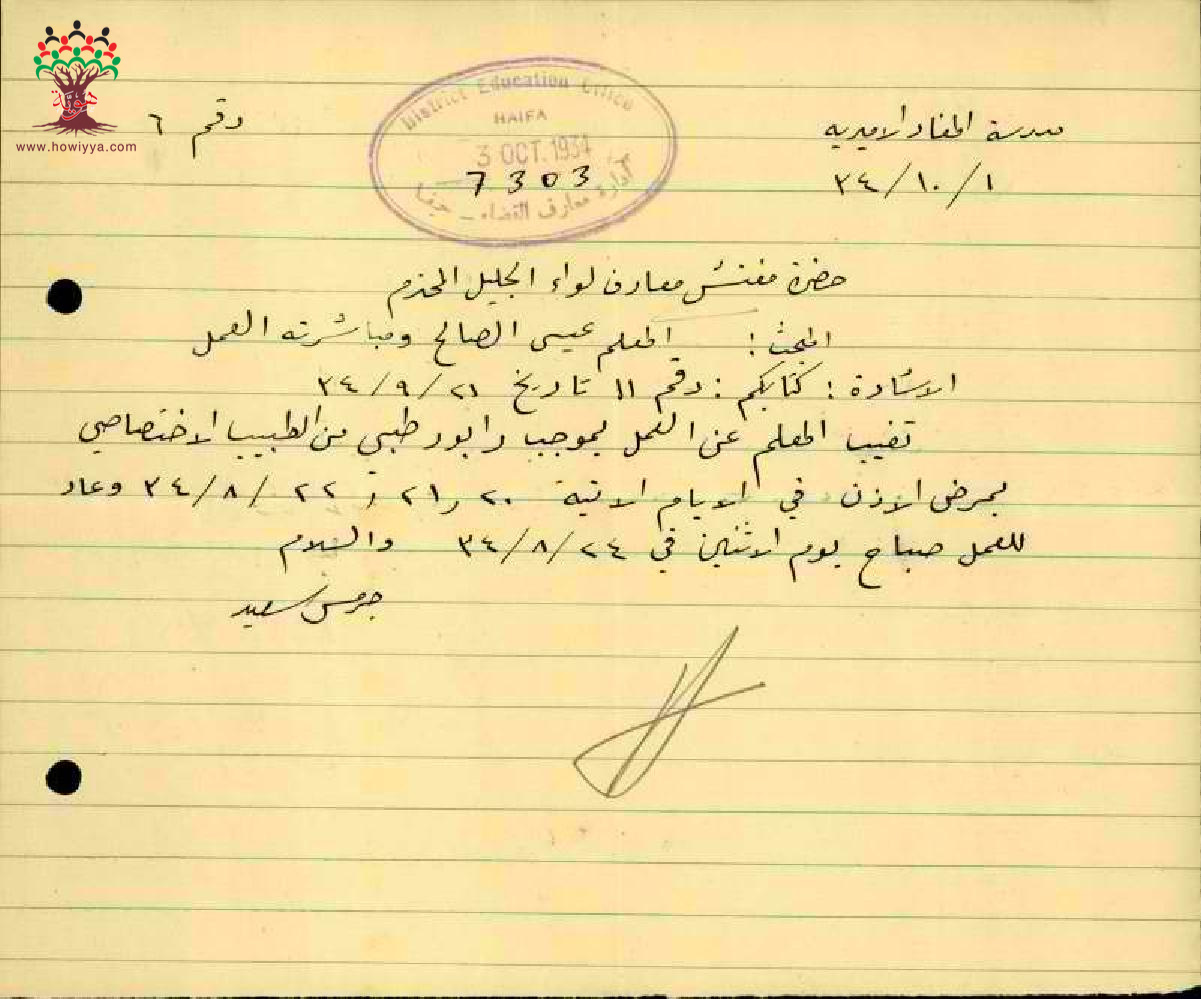 هوية
www.howiyya.com
District Education Office
HAIFA
3 OCT. 1934
7303
ادارة معارف القضاء - حيفا
مدرسة المغار الاميريه
رقم ٦
١/١٠/٣٤
حضرة مفتش معارف لواء الجليل المحترم
المبحث : المعلم عيسى الصالح ومباشرته العمل
الاشارة : كتابكم : رقم ١١ تاريخ ٢١/٩/٣٤
تغيب المعلم عن العمل بموجب رابور طبي من الطبيب الاختصاصي
بمرض الاذن في الايام الاتية ٢٠ر٢١ر٢٢/٨/٣٤ وعاد
للعمل صباح يوم الاثنين في ٢٤/٨/٣٤ والسلام
جرجس سعيد